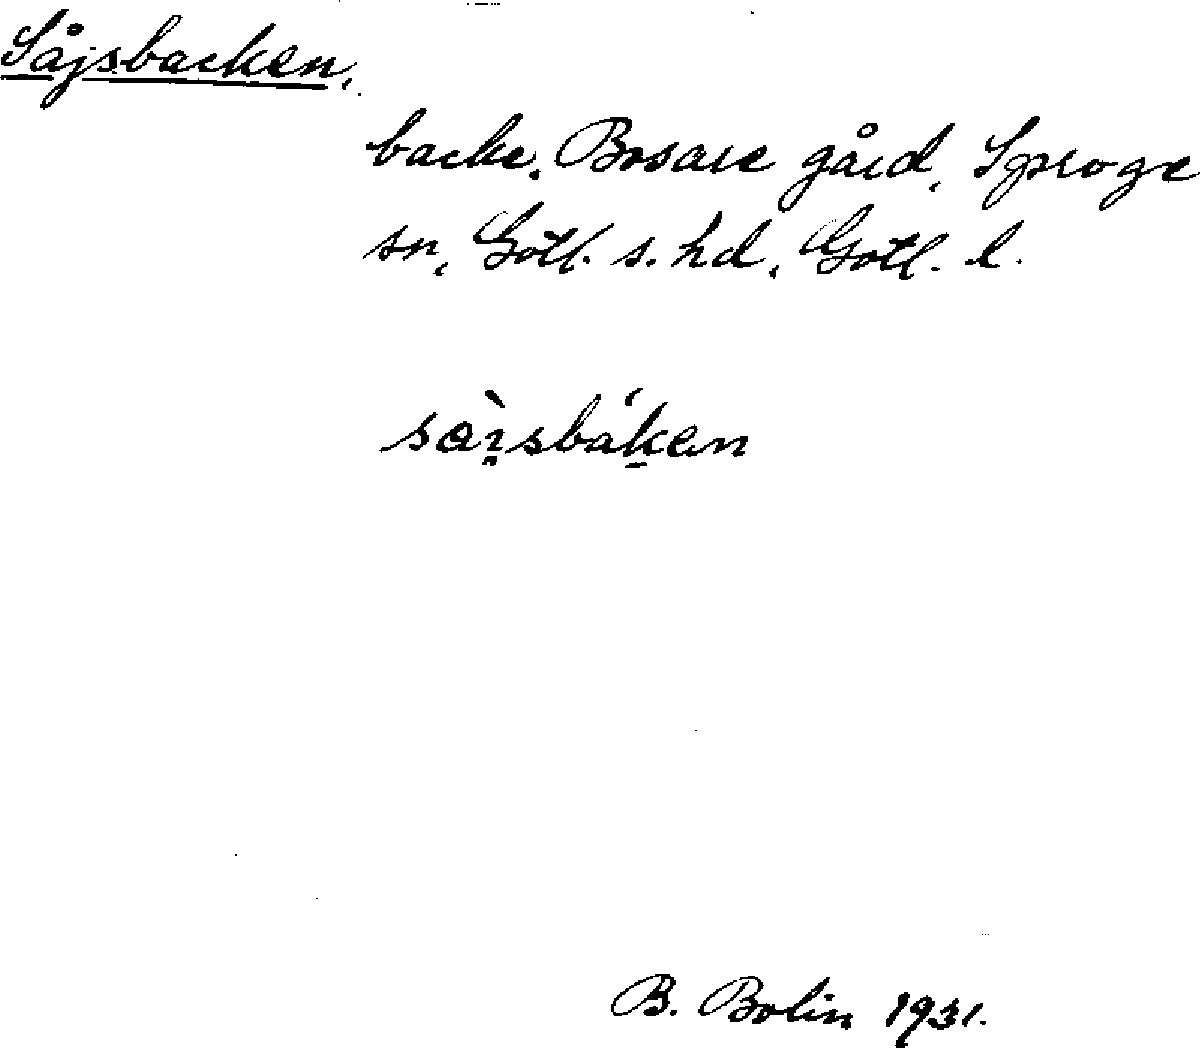 Såjsbacken,
backe, Bosare gård, Sproge
sn, Gotl. s. hd, Gotl. l.
sɵ̀ı̯sbák̠en
B. Bolin 1931.